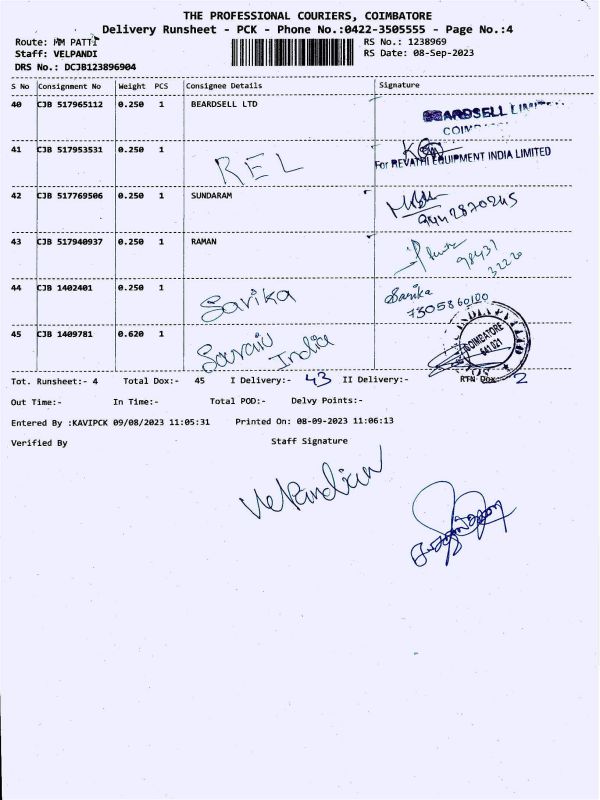 THE PROFESSIONAL COURIERS, COIMBATORE
Delivery Runsheet - PCK - Phone No.:0422-3505555 - Page No.:4
Route: HM PATTI RS No.: 1238969
Staff: VELPANDI RS Date: 08-Sep-2023
DRS No.: DCJB123896904
S No Consignment No Weight PCS Consignee Details Signature
40 CJB 517965112 0.250 1 BEARDSELL LTD
BEARDSELL
41 CJB 517953531 0.250 1 REL
For REVATHI EQUIPMENT INDIA LIMITED
42 CJB 517769506 0.250 1 SUNDARAM
9442870245
43 CJB 517940937 0.250 1 RAMAN
98431
3222
44 CJB 1402401 0.250 1 Sarika Sarika
7305860100
45 CJB 1409781 0.620 1 India
COIMBATORE
641 021
Tot. Runsheet:- 4 Total Dox:- 45 I Delivery:- 43 II Delivery:- RTN Dox:- 2
Out Time:- In Time:- Total POD:- Delvy Points:-
Entered By :KAVIPCK 09/08/2023 11:05:31 Printed On: 08-09-2023 11:06:13
Verified By Staff Signature
Velpandian